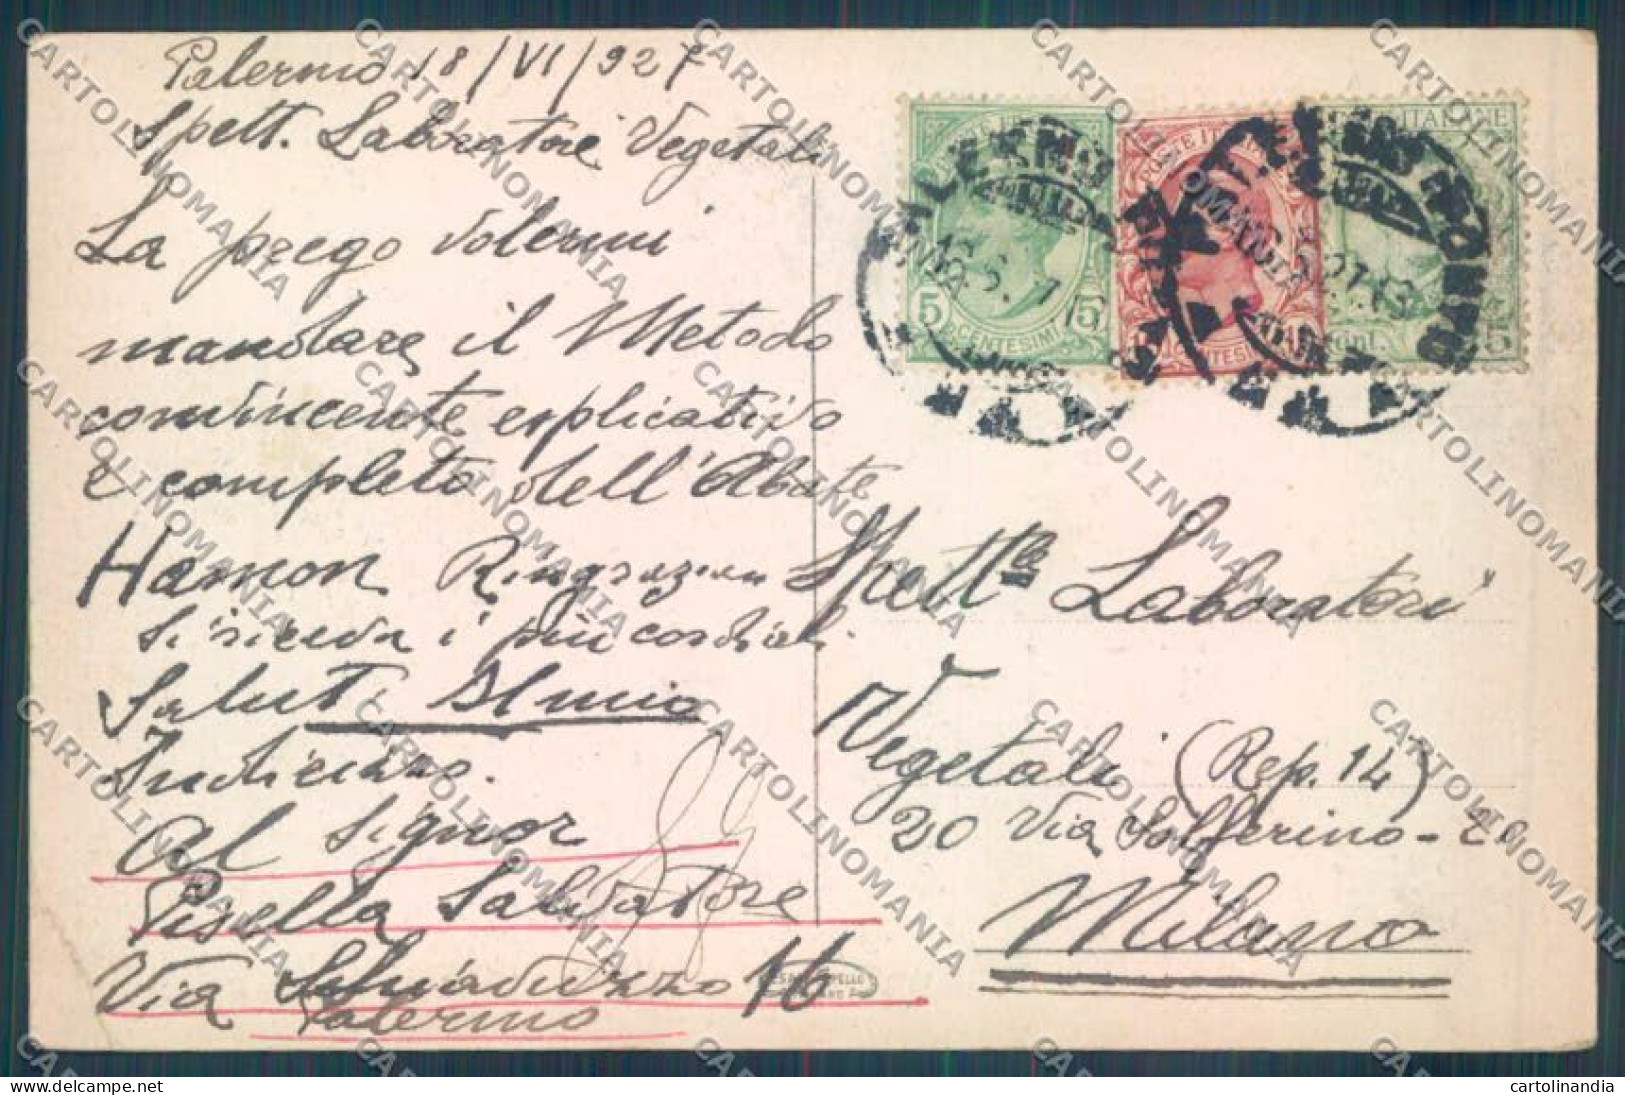 Palermo 18/VI/927
Spett. Laboratori Vegetali
La prego volermi
mandare il Metodo
convincente esplicativo
e completo dell'Abate
Hamon Ringrazian
Si riceva i più cordiali
Saluti Il mio
Indirizzo.
Al Signor
Pisella Salvatore
Via 16
Palermo
Spett.le Laboratori
Vegetali (Rep. 14)
20 Via Solferino - 20
Milano
POSTE ITALIANE
5 5
CENTESIMI
CENTESIMI
ITALIANE
5
PALERMO
CARTOLINOMANIA
cartolinandia